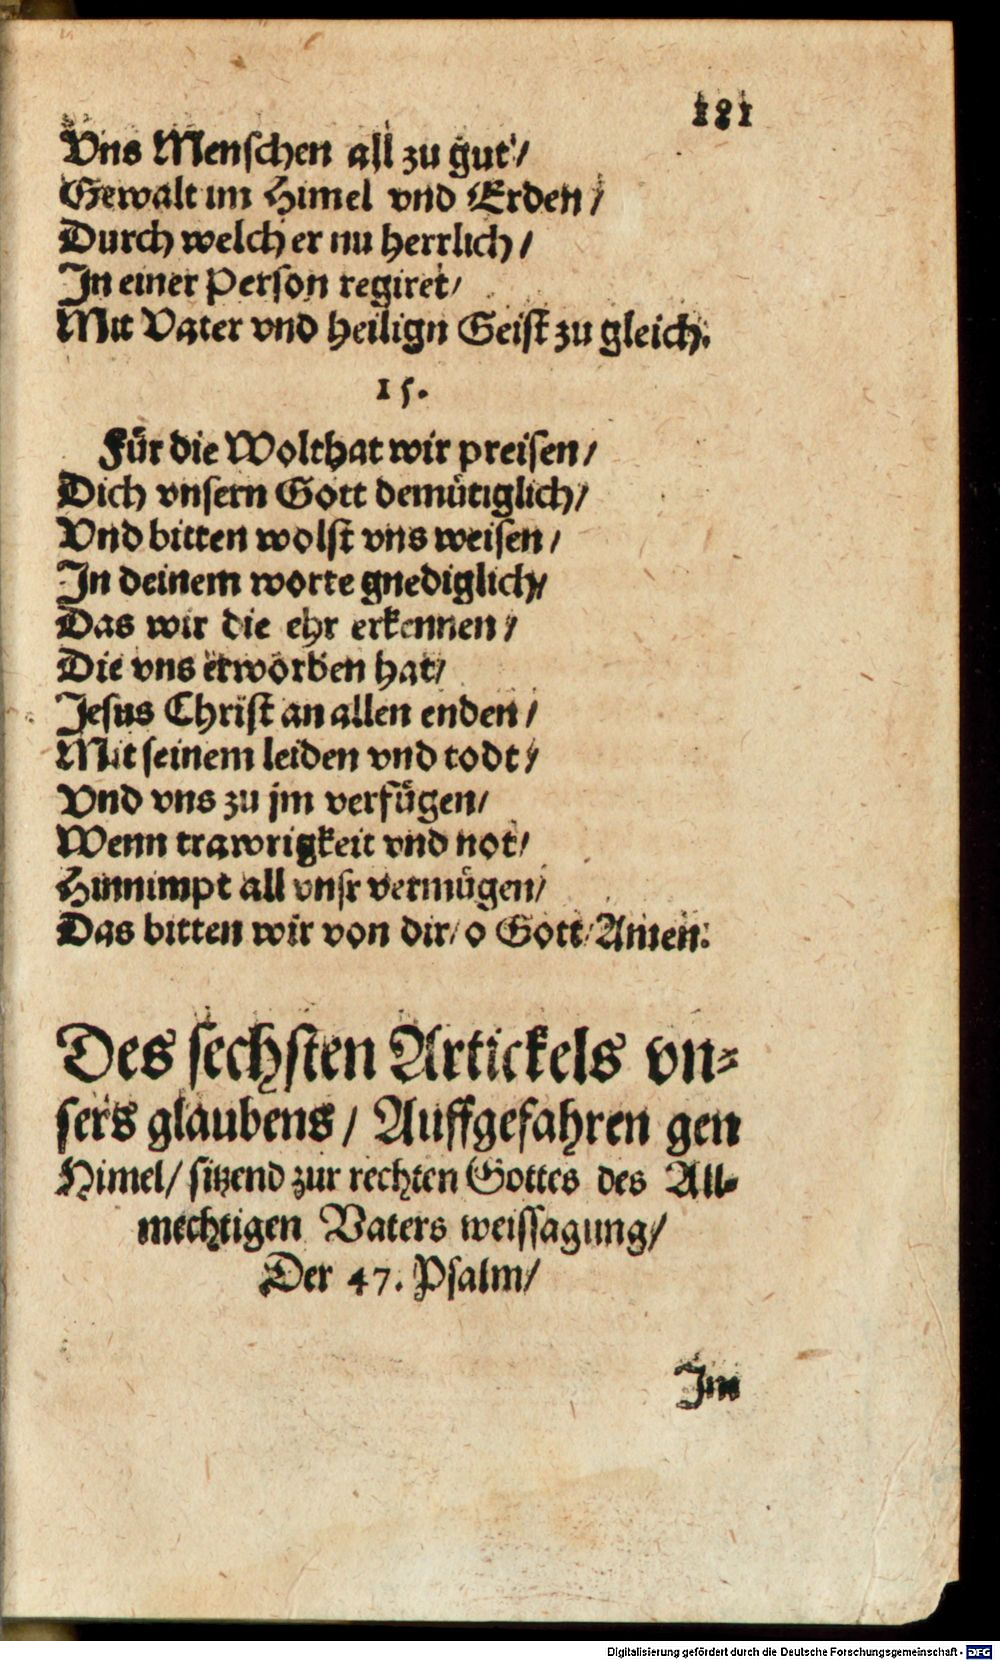 181
Vns Menschen all zu gut/
Gewalt im Himel vnd Erden/
Durch welch er nu herrlich/
In einer Person regiret/
Mit Vater vnd heilign Geist zu gleich.
15.
Für die Wolthat wir preisen/
Dich vnsern Gott demütiglich/
Vnd bitten wolst vns weisen/
In deinem worte gnediglich/
Das wir die ehr erkennen/
Die vns erworben hat/
Jesus Christ an allen enden/
Mit seinem leiden vnd todt/
Vnd vns zu jm verfügen/
Wenn trawrigkeit vnd not/
Hinnimpt all vnsr vermügen/
Das bitten wir von dir/ o Gott/ Amen.
Des sechsten Artickels vn-
sers glaubens/ Auffgefahren gen
Himel/ sitzend zur rechten Gottes des All-
mechtigen Vaters weissagung/
Der 47. Psalm/
Im
Digitalisierung gefördert durch die Deutsche Forschungsgemeinschaft - DFG